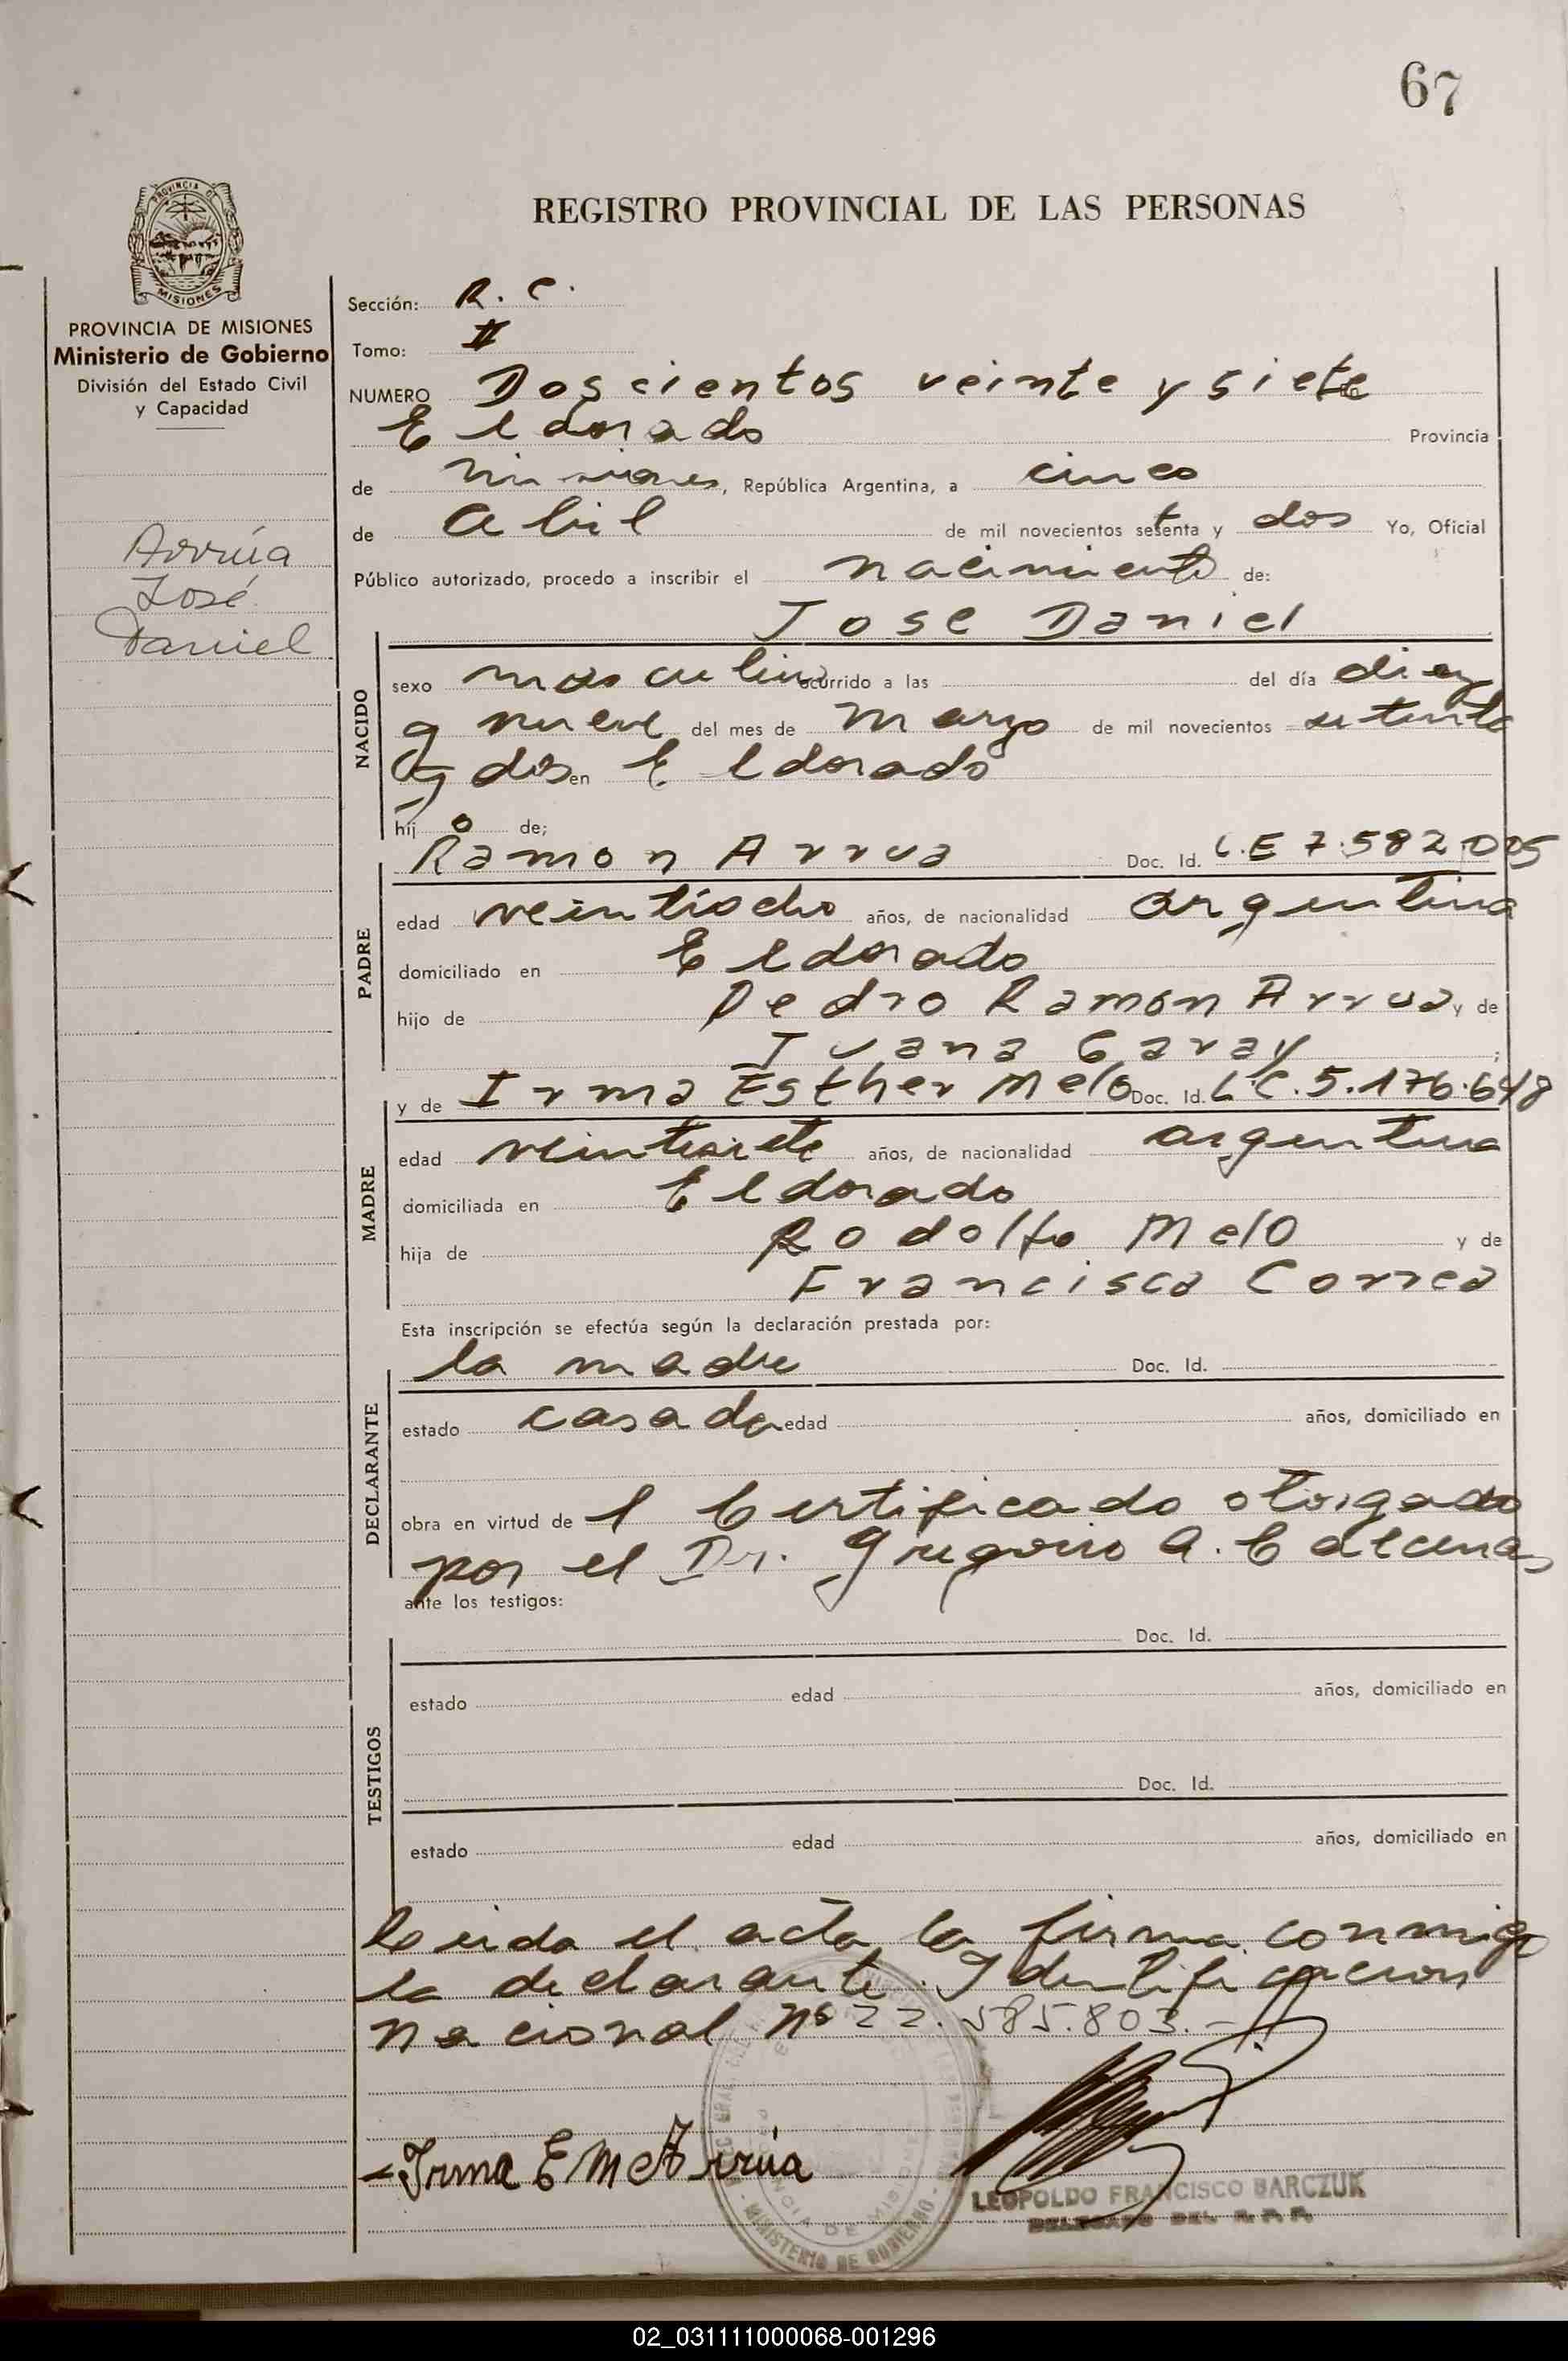 67
PROVINCIA DE
MISIONES
REGISTRO PROVINCIAL DE LAS PERSONAS
PROVINCIA DE MISIONES
Ministerio de Gobierno
División del Estado Civil
y Capacidad
Arrúa
José
Daniel
Sección: R. C.
Tomo: II
NUMERO Doscientos veinte y siete
Eldorado Provincia
de Misiones, República Argentina, a cinco
de Abril de mil novecientos setenta y dos Yo, Oficial
Público autorizado, procedo a inscribir el nacimiento de:
Jose Daniel
NACIDO
sexo masculino ocurrido a las del día diez
y nueve del mes de marzo de mil novecientos setenta
y dos en Eldorado
hij o de;
PADRE
Ramon Arrua Doc. Id. L.E 7.582.005
edad veintiocho años, de nacionalidad argentina
domiciliado en Eldorado
hijo de Pedro Ramón Arrua y de
Juana Garay ;
MADRE
y de Irma Esther Melo Doc. Id. L.C.5.176.648
edad veintisiete años, de nacionalidad argentina
domiciliada en Eldorado
hija de Rodolfo Melo y de
Francisca Correa
Esta inscripción se efectúa según la declaración prestada por:
DECLARANTE
la madre Doc. Id.
estado casada edad años, domiciliado en
obra en virtud de l Certificado otorgado
por el Dr. Gregorio A.
ante los testigos:
TESTIGOS
Doc. Id.
estado edad años, domiciliado en
Doc. Id.
estado edad años, domiciliado en
Leida el acta la firma conmigo
la declarante. Identificacion
Nacional Nº 22.585.803.-
Irma E M de Arrúa
MINISTERIO DE GOBIERNO
LEOPOLDO FRANCISCO BARCZUK
DELEGADO DEL R. P. P.
02_031111000068-001296